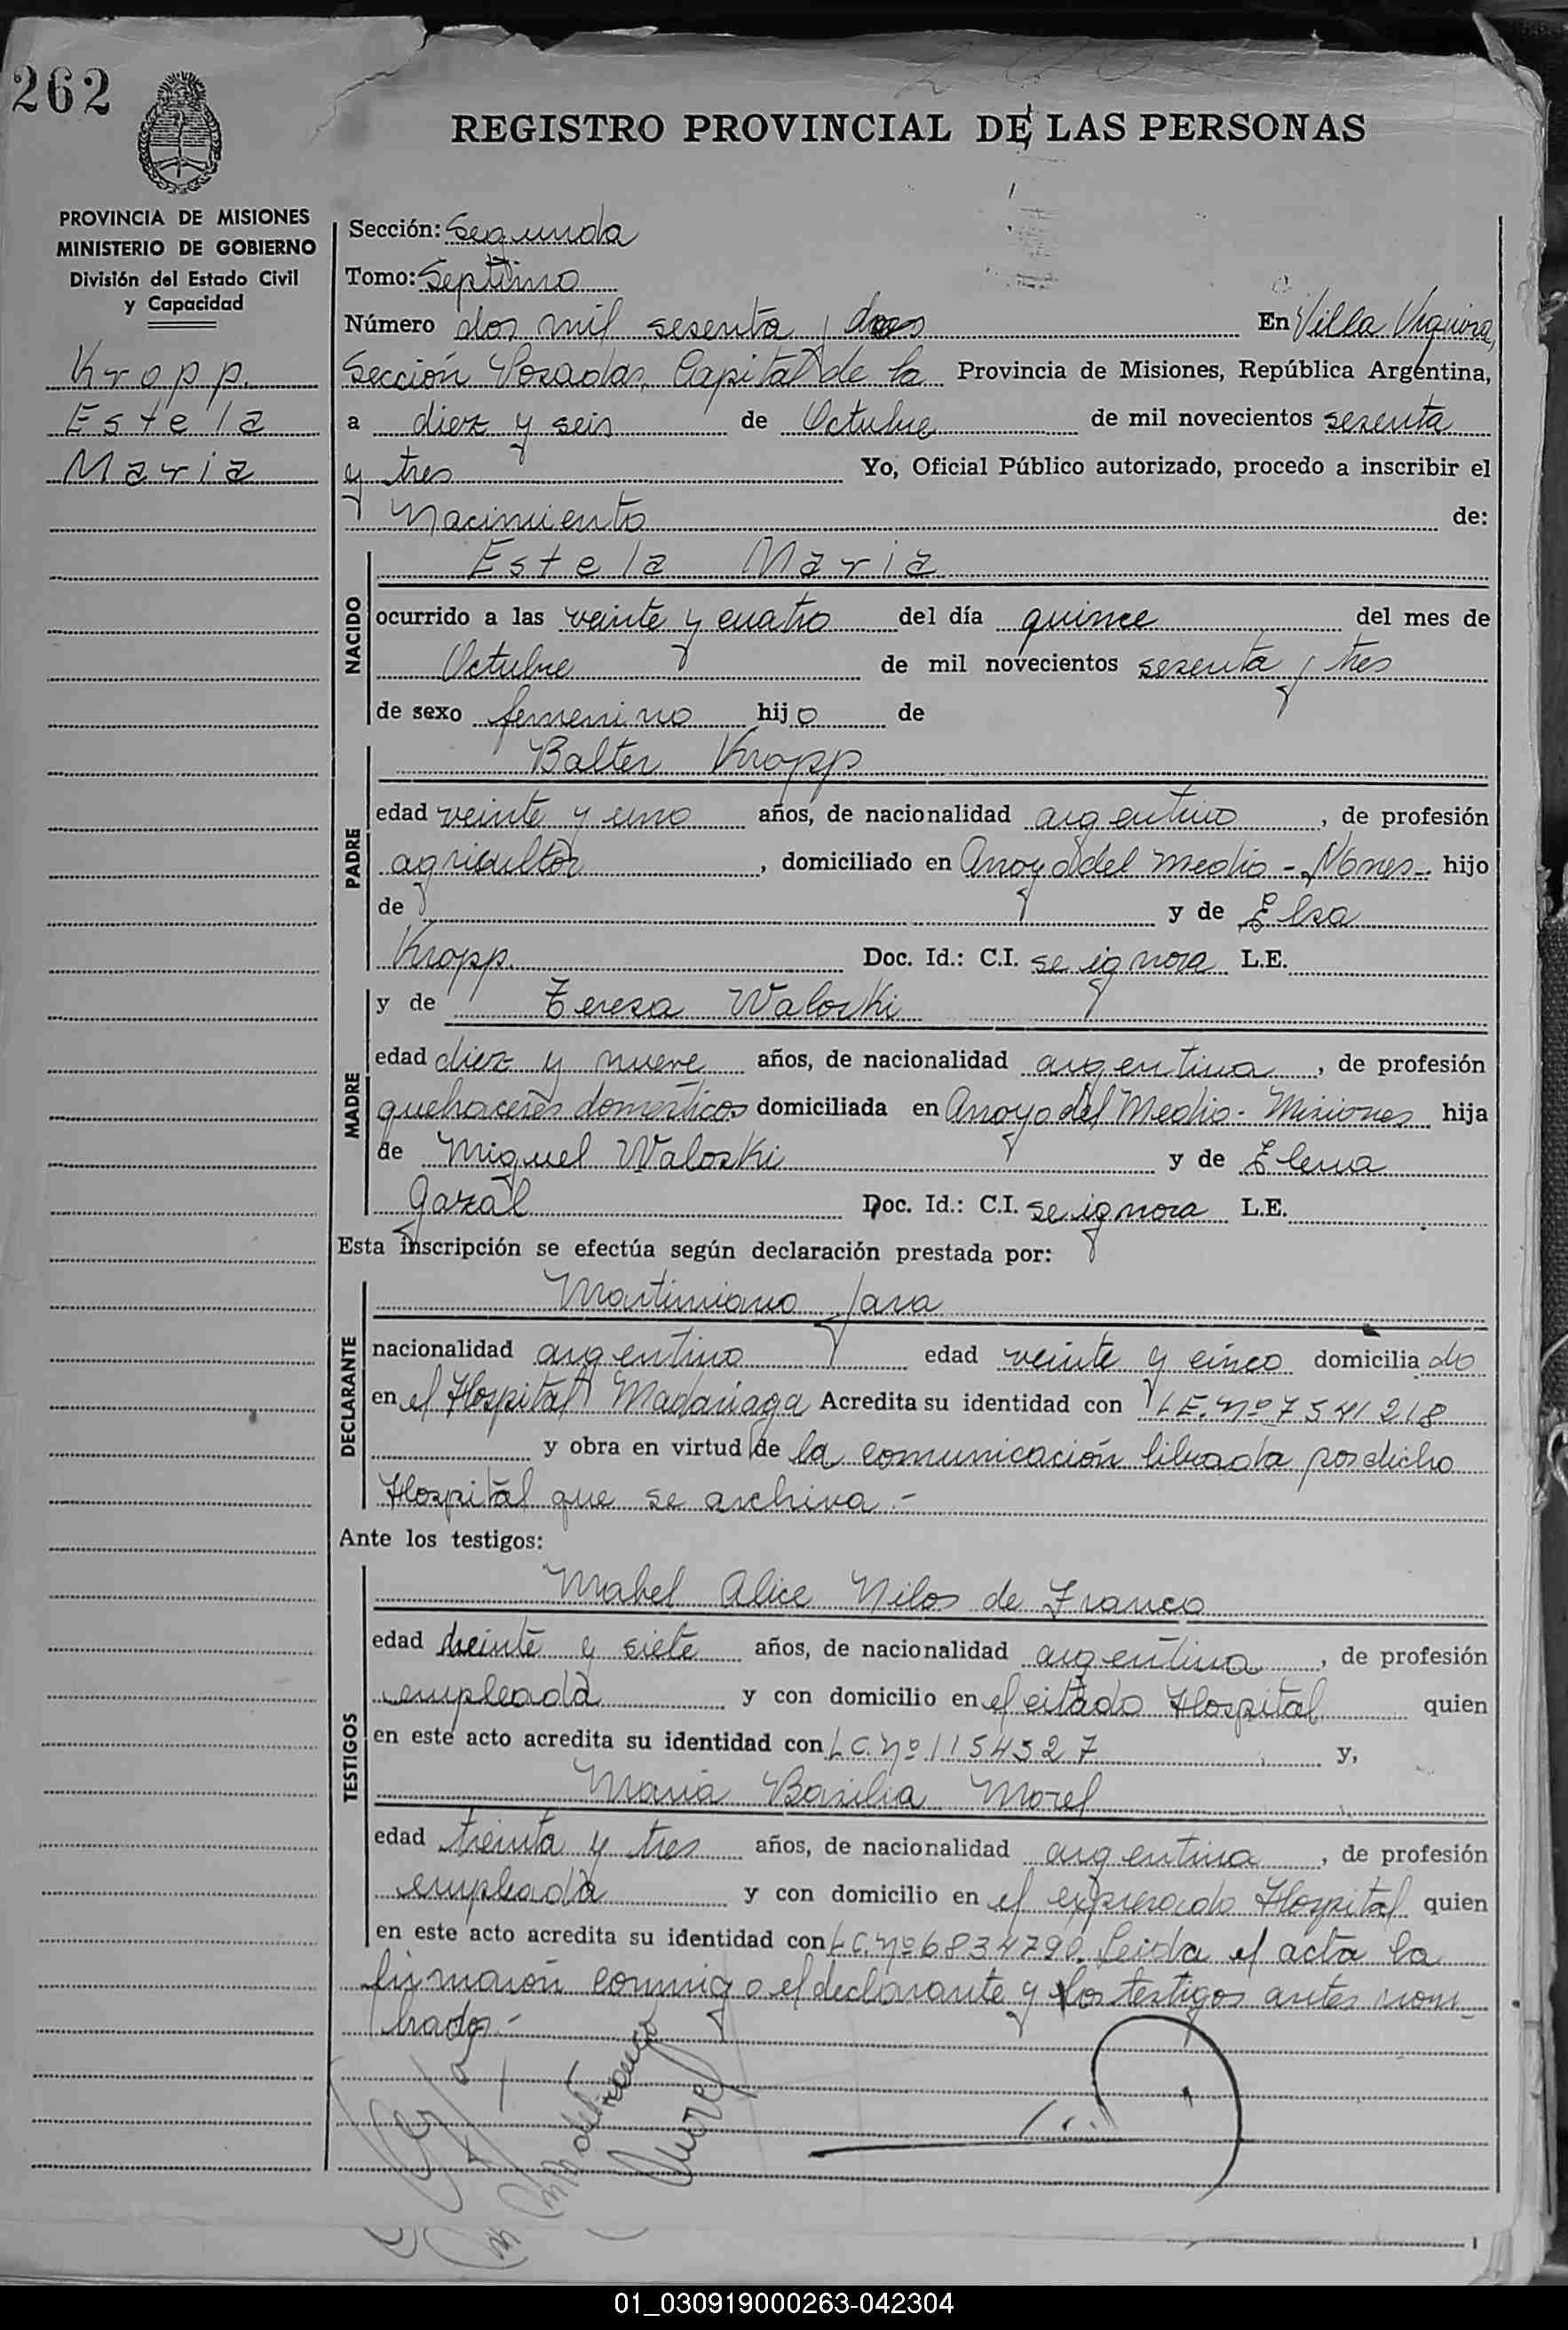 262
REGISTRO PROVINCIAL DE LAS PERSONAS
PROVINCIA DE MISIONES
MINISTERIO DE GOBIERNO
División del Estado Civil
y Capacidad
Kropp
Estela
Maria
Sección: Segunda
Tomo: Septimo
Número dos mil sesenta y dos En Villa Urquiza,
Sección Posadas, Capital de la Provincia de Misiones, República Argentina,
a diez y seis de Octubre de mil novecientos sesenta
y tres Yo, Oficial Público autorizado, procedo a inscribir el
Nacimiento de:
NACIDO
Estela Maria
ocurrido a las veinte y cuatro del día quince del mes de
Octubre de mil novecientos sesenta y tres
de sexo femenino hijo de
PADRE
Balter Kropp
edad veinte y uno años, de nacionalidad argentino, de profesión
agricultor, domiciliado en Arroyo del Medio - Mones - hijo
de y de Elsa
Kropp. Doc. Id.: C.I. se ignora L.E.
MADRE
y de Teresa Waloski
edad diez y nueve años, de nacionalidad argentina, de profesión
quehaceres domesticos domiciliada en Arroyo del Medio - Misiones hija
de Miguel Waloski y de Elena
Gazal Doc. Id.: C.I. se ignora L.E.
Esta inscripción se efectúa según declaración prestada por:
DECLARANTE
Martiniano Jara
nacionalidad argentino edad veinte y cinco domiciliado
en el Hospital Madariaga Acredita su identidad con L.E. Nº 7541218
y obra en virtud de la comunicación librada por dicho
Hospital que se archiva.-
Ante los testigos:
TESTIGOS
Mabel Alice Nilos de Franco
edad treinte y siete años, de nacionalidad argentina, de profesión
empleada y con domicilio en el citado Hospital quien
en este acto acredita su identidad con L.C. Nº 1154527 y,
Maria Basilia Morel
edad treinta y tres años, de nacionalidad argentina, de profesión
empleada y con domicilio en el expresado Hospital quien
en este acto acredita su identidad con L.C. Nº 6834790. Leida el acta la
firmaron conmigo el declarante y los testigos antes nom-
brados.-
de Franco
Morel
01_030919000263-042304